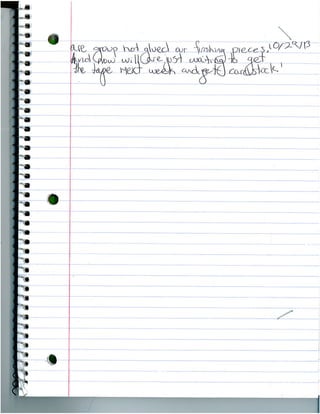 are group hot glued our finshing pieces. 10/29/13
And now will are just waiting to get
the tape next week and get cardstock!